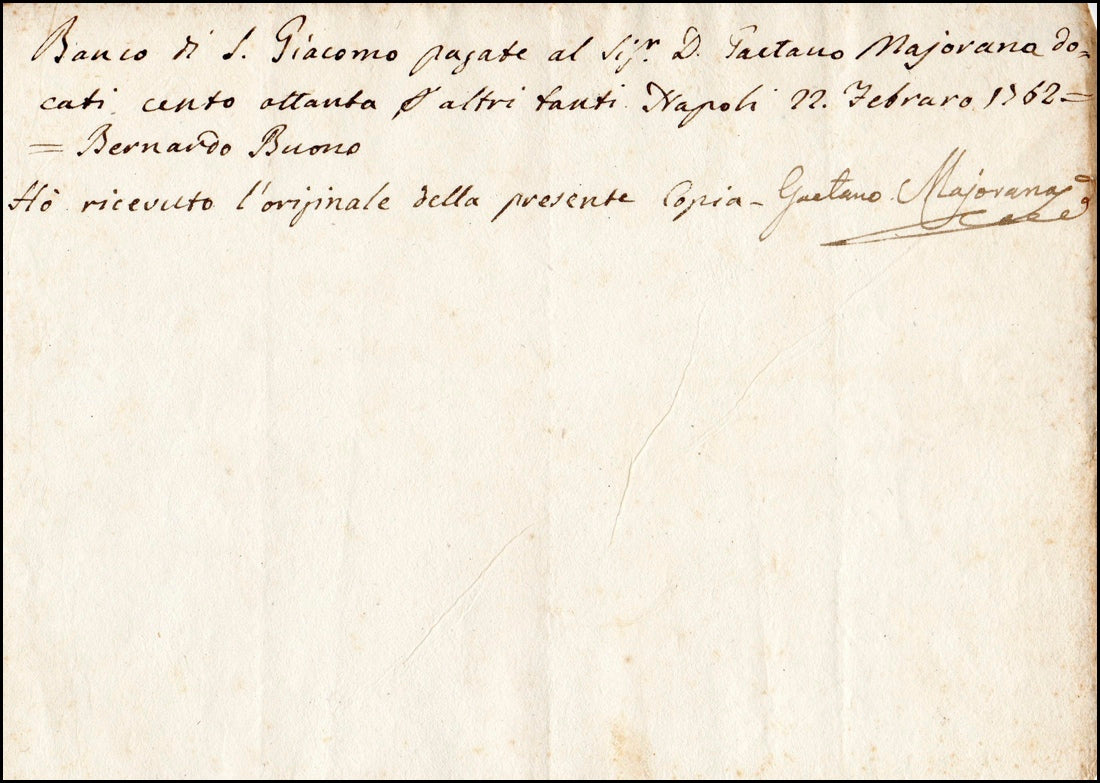 Banco di S. Giacomo pagate al Sig.r D. Gaetano Majorana do=
cati cento ottanta p altri tanti Napoli 22. Febraro 1762=
= Bernardo Buono
Hò ricevuto l'originale della presente Copia - Gaetano Majorana